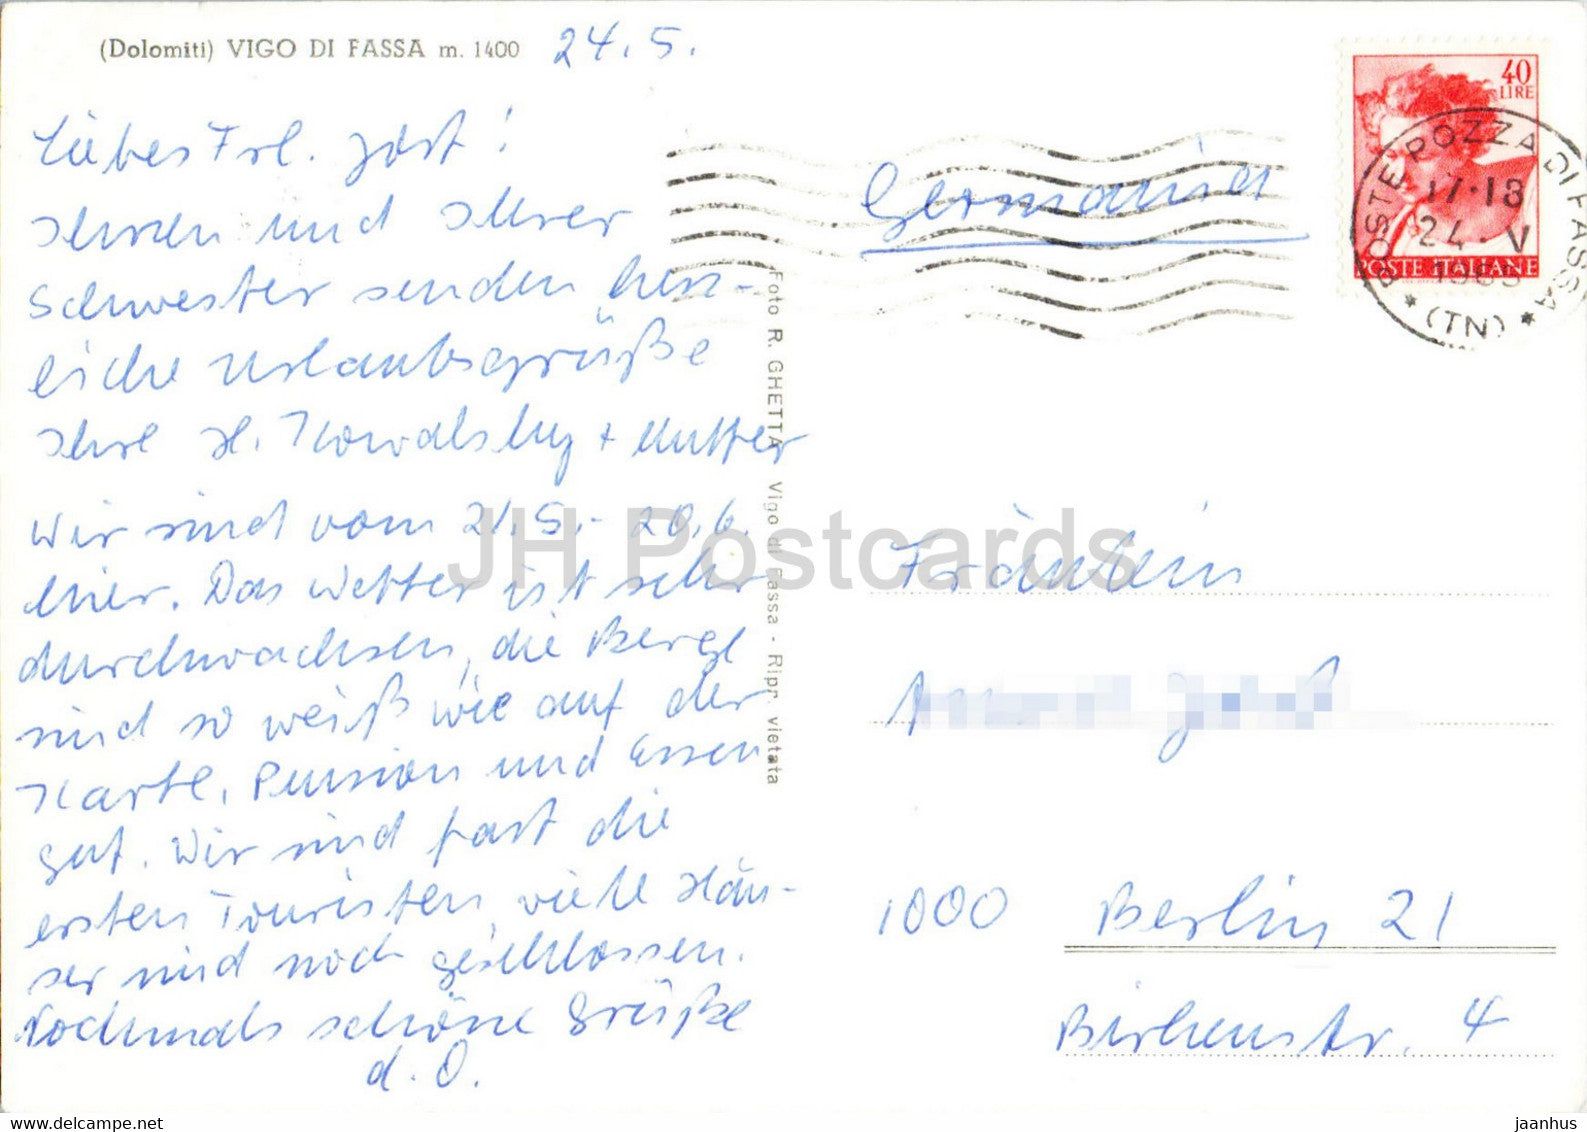 (Dolomiti) VIGO DI FASSA m. 1400
24.5.
Liebes Frl. Jost!
Ihnen und Ihrer
Schwester senden herz-
liche Urlaubsgrüße
Ihre H. Kowalsky + Mutter
Wir sind vom 21.5.- 20.6.
hier. Das Wetter ist sehr
durchwachsen, die Berge
sind so weiß wie auf der
Karte, Pension und Essen
gut. Wir sind fast die
ersten Touristen, viele Häu-
ser sind noch geschlossen.
Nochmals schöne Grüße
d. O.
Foto R. GHETTA Vigo di Fassa - Ripr. vietata
Germania
40
LIRE
POSTE ITALIANE
POSTE POZZA DI FASSA
17-18
24. V
1965
* (TN) *
Fräulein
1000 Berlin 21
Birkenstr. 4
JH Postcards
www.delcampe.net
jaanhus